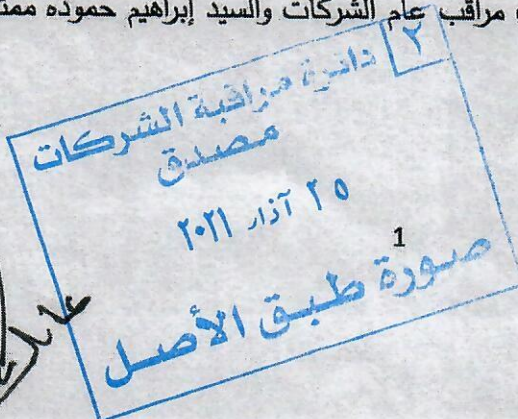 مراقب عام الشركات والسيد إبراهيم حموده
٢
دائرة مراقبة الشركات
مصدق
٢٥ آذار ٢٠٢١
1
صورة طبق الأصل